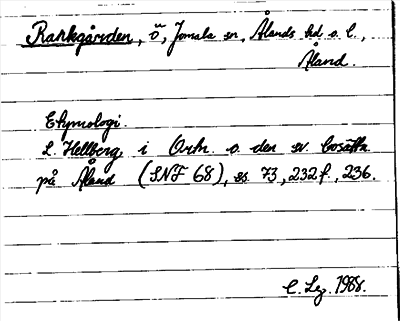 Rankgården, ö, Jomala sn, Ålands hd o. l.,
Åland.
Etymologi.
L. Hellberg i Ortn. o. den sv. bosättn.
på Åland (SNF 68), ss 73, 232 f., 236.
1988.